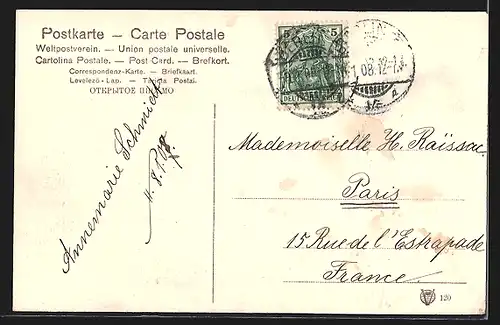 Postkarte – Carte Postale
Weltpostverein. – Union postale universelle.
Cartolina Postale. – Post Card. – Brefkort.
Correspondenz-Karte. – Briefkaart.
Levelező-Lap. – Tarjeta Postal.
ОТКРЫТОЕ ПИСЬМО
Annemarie Schmidt
5 5
DEUTSCHES REICH
08.12-1
Mademoiselle H. Raïssac
Paris
15 Rue de l'Estrapade
France
120